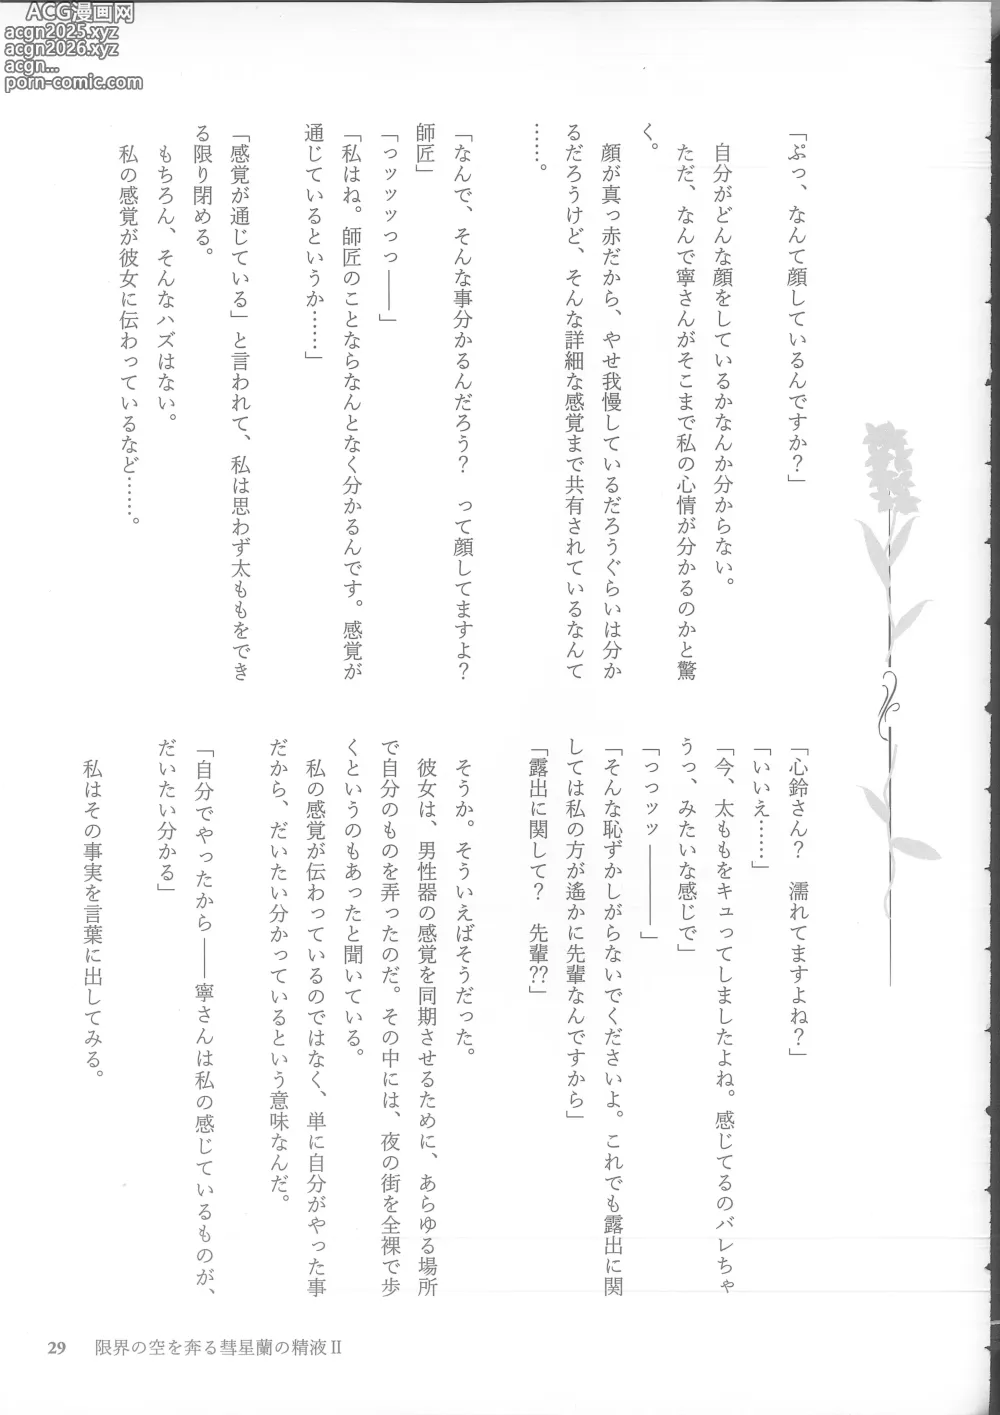 ACG漫画网
acgn2025.xyz
acgn2026.xyz
acgn...
porn-comic.com
「ぷっ、なんて顔しているんですか？」
自分がどんな顔をしているかなんか分からない。
ただ、なんで寧さんがそこまで私の心情が分かるのかと驚
く。
顔が真っ赤だから、やせ我慢しているだろうぐらいは分か
るだろうけど、そんな詳細な感覚まで共有されているなんて
……。
「なんで、そんな事分かるんだろう？　って顔してますよ？
師匠」
「っッッッっっ――」
「私はね。師匠のことならなんとなく分かるんです。感覚が
通じているというか……」
「感覚が通じている」と言われて、私は思わず太ももをでき
る限り閉める。
もちろん、そんなハズはない。
私の感覚が彼女に伝わっているなど……。
「心鈴さん？　濡れてますよね？」
「いいえ……」
「今、太ももをキュってしましたよね。感じてるのバレちゃ
うっ、みたいな感じで」
「っっッッ――――」
「そんな恥ずかしがらないでくださいよ。これでも露出に関
しては私の方が遙かに先輩なんですから」
「露出に関して？　先輩??」
そうか。そういえばそうだった。
彼女は、男性器の感覚を同期させるために、あらゆる場所
で自分のものを弄ったのだ。その中には、夜の街を全裸で歩
くというのもあったと聞いている。
私の感覚が伝わっているのではなく、単に自分がやった事
だから、だいたい分かっているという意味なんだ。
「自分でやったから――寧さんは私の感じているものが、
だいたい分かる」
私はその事実を言葉に出してみる。
29　限界の空を奔る彗星蘭の精液Ⅱ